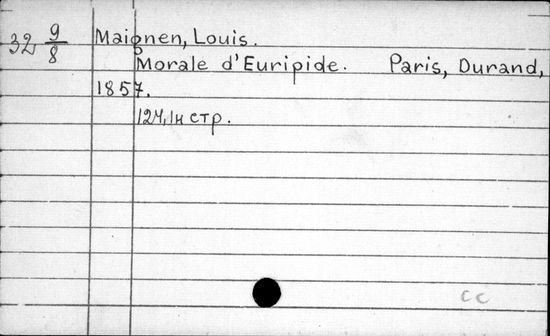 32 9/8
Maignen, Louis.
Morale d'Euripide. Paris, Durand,
1857.
124, 1н стр.
cc